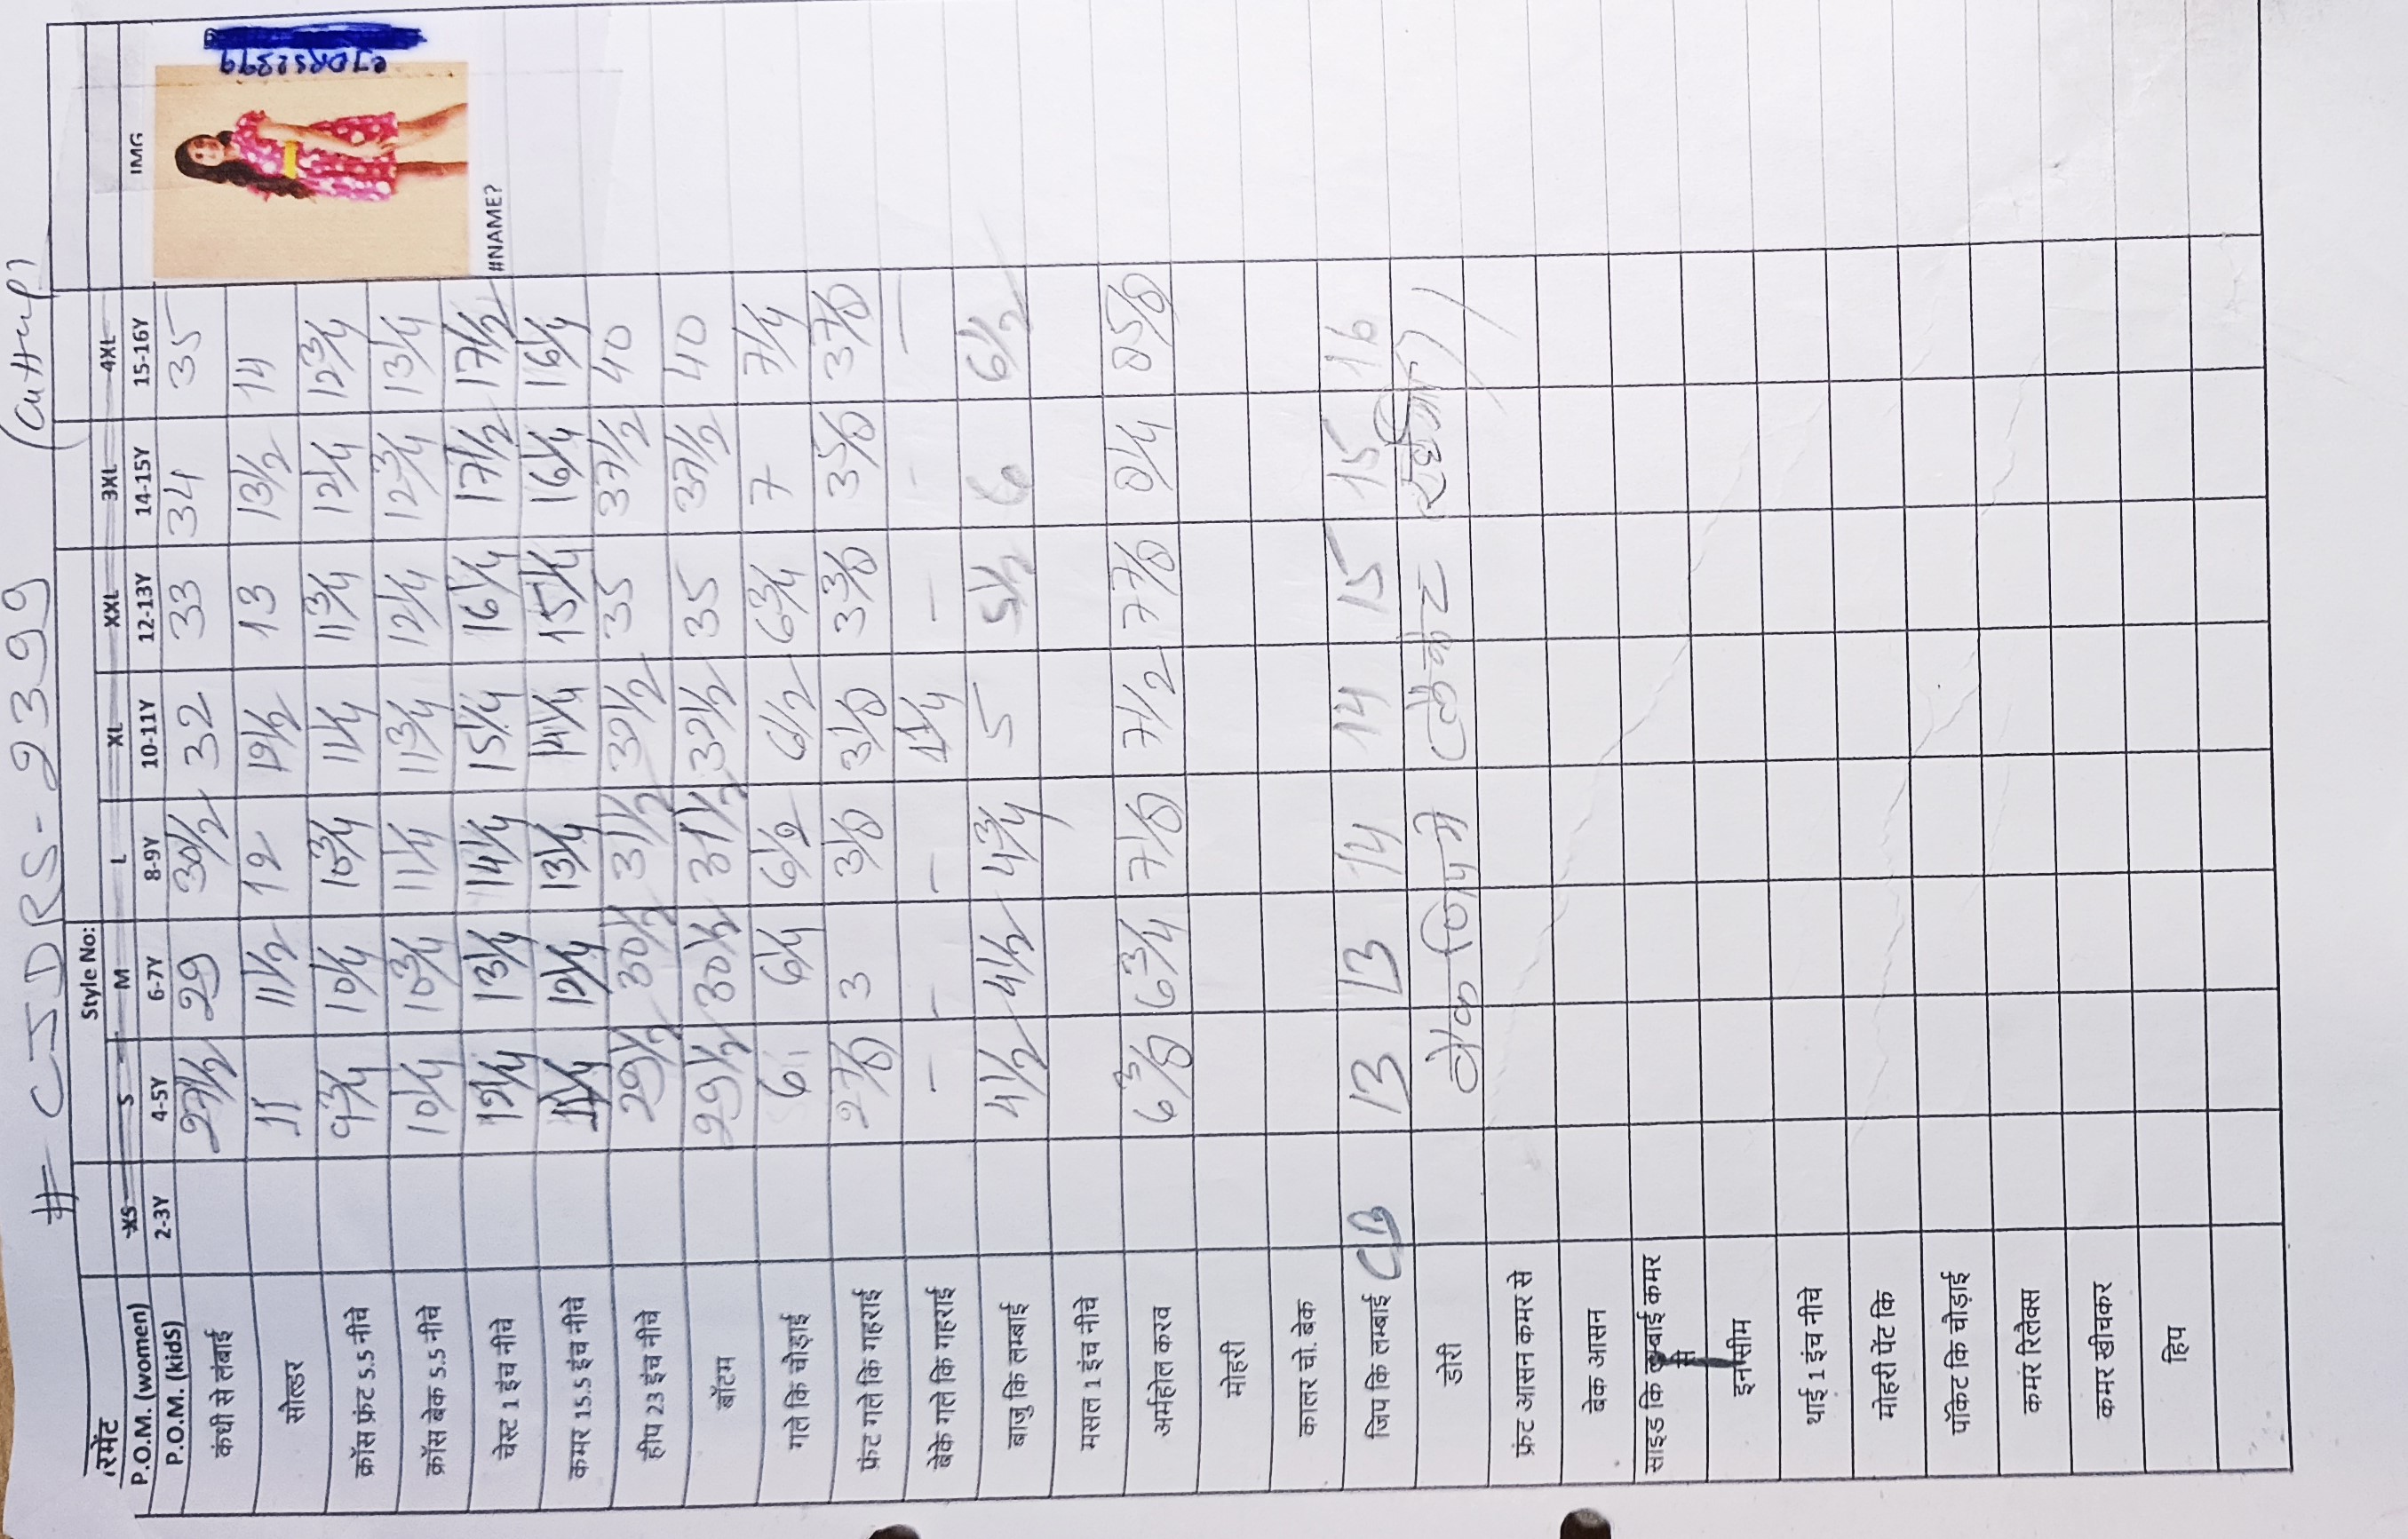 # CJDRS-2399 (Cutter)
CJDRS2399
Style No:
रमेंट
P.O.M. (women) XS S M L XL XXL 3XL 4XL IMG
P.O.M. (kidS) 2-3Y 4-5Y 6-7Y 8-9Y 10-11Y 12-13Y 14-15Y 15-16Y
कंधी से लंबाई 27 1/2 29 30 1/2 32 33 34 35
सोल्डर 11 11 1/2 12 12 1/2 13 13 1/2 14
क्रॉस फ्रंट 5.5 नीचे 9 3/4 10 1/4 10 3/4 11 1/4 11 3/4 12 1/4 12 3/4
क्रॉस बेक 5.5 नीचे 10 1/4 10 3/4 11 1/4 11 3/4 12 1/4 12 3/4 13 1/4
चेस्ट 1 इंच नीचे 12 1/4 13 1/4 14 1/4 15 1/4 16 1/4 17 1/2 17 1/2
#NAME?
कमर 15.5 इंच नीचे 11 1/4 12 1/4 13 1/4 14 1/4 15 1/4 16 1/4 16 1/4
हीप 23 इंच नीचे 29 1/2 30 1/2 31 1/2 32 1/2 35 37 1/2 40
बॉटम 29 1/2 30 1/2 31 1/2 32 1/2 35 37 1/2 40
गले कि चोड़ाई 6 6 1/4 6 1/2 6 1/2 6 3/4 7 7 1/4
फ्रंट गले कि गहराई 2 7/8 3 3 1/8 3 1/8 3 3/8 3 5/8 3 7/8
बेके गले कि गहराई - - - 1 1/4 - - -
बाजु कि लम्बाई 4 1/2 4 1/2 4 3/4 5 5 1/2 6 6 1/2
मसल 1 इंच नीचे
अर्महोल करव 6 3/8 6 3/4 7 1/8 7 1/2 7 7/8 8 1/4 8 5/8
मोहरी
कालर चो. बेक
जिप कि लम्बाई CB 13 13 14 14 15 15 16
डोरी बेक जिप मे
फ्रंट आसन कमर से
बेक आसन
साइड कि लम्बाई कमर से
इनसीम
थाई 1 इंच नीचे
मोहरी पेंट कि
पॉकेट कि चौड़ाई
कमर रिलैक्स
कमर खीचकर
हिप